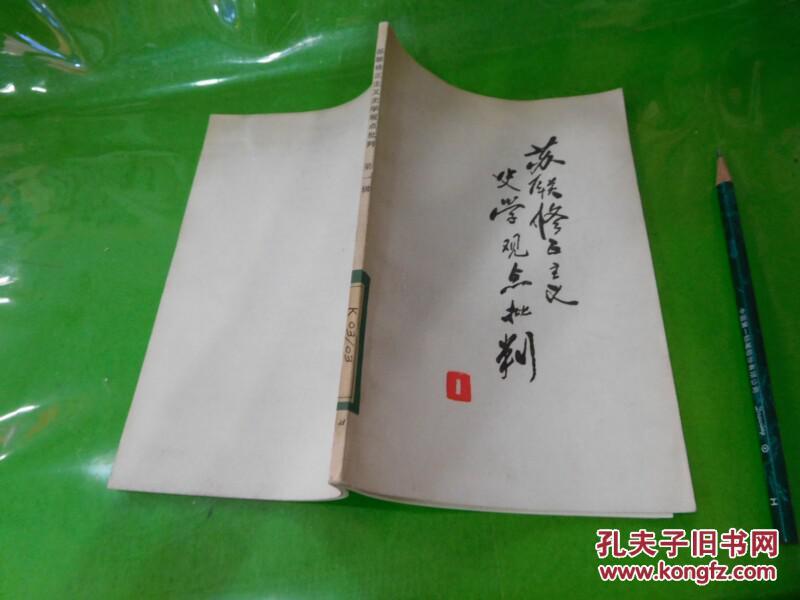 苏联修正主义
史学观点批判
1
苏联修正主义史学观点批判 第一辑
K03/03
H
孔夫子旧书网
www.kongfz.com